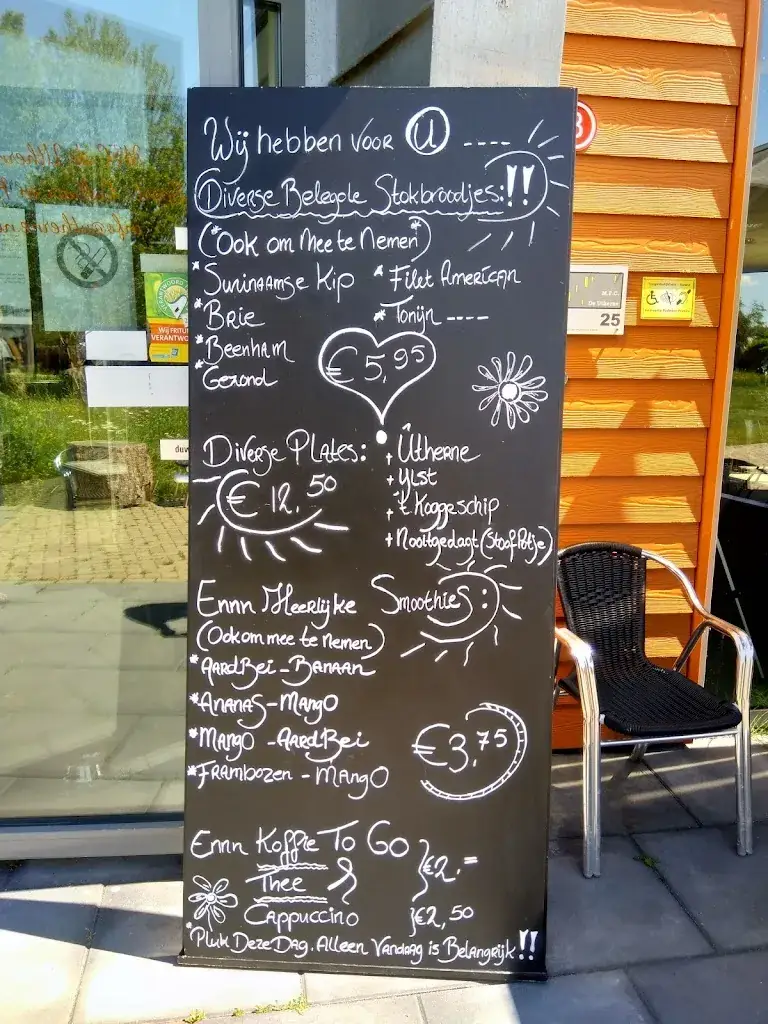 Wij hebben voor U ----
Diverse Belegde Stokbroodjes:!!
(*Ook om mee te nemen*)
*Surinaamse Kip *Filet American
*Brie *Tonijn ----
*Beenham
*Gezond
€5,95
Diverse Plates: + Ûtherne
+ Ylst
€12,50
+ 't Koggeschip
+ Nooitgedagt (Stoofpotje)
Ennn Heerlijke Smoothies:
(Ook om mee te nemen)
*Aardbei - Banaan
*Ananas - Mango
*Mango - Aardbei
€3,75
*Frambozen - Mango
Ennn Koffie To Go
Thee
€2,=
Cappuccino €2,50
*Pluk Deze Dag. Alleen Vandaag is Belangrijk!!
25